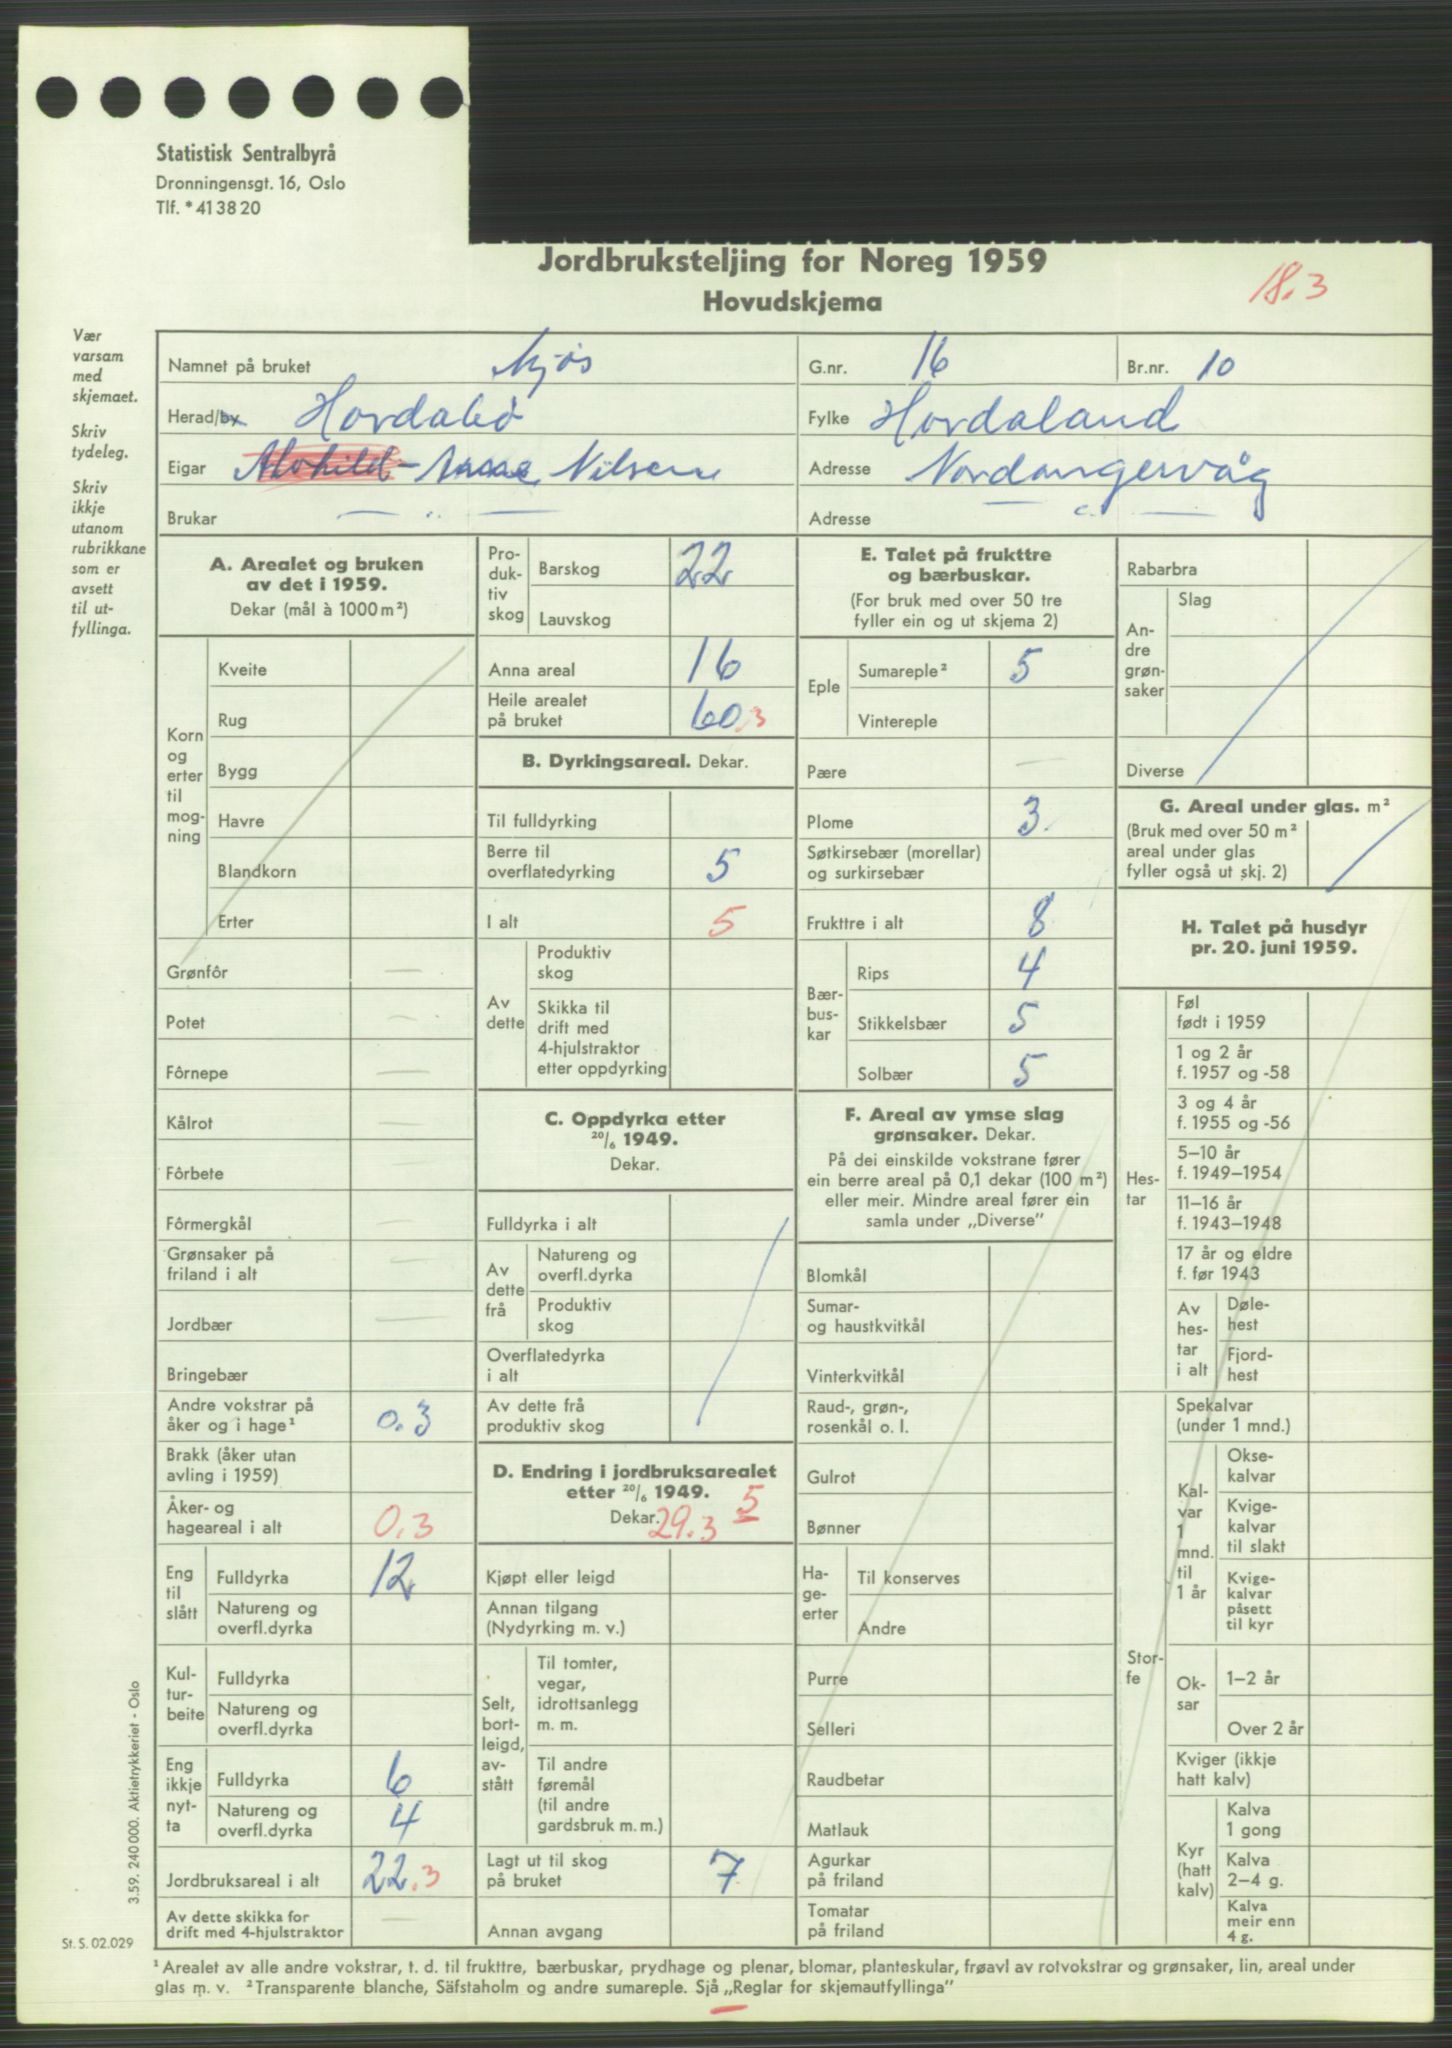 Statistisk Sentralbyrå
Dronningensgt. 16, Oslo
Tlf. * 41 38 20
Jordbruksteljing for Noreg 1959
Hovudskjema
18.3
Vær
varsam
med
skjemaet.
Skriv
tydeleg.
Skriv
ikkje
utanom
rubrikkane
som er
avsett
til ut-
fyllinga.
Namnet på bruket Mjøs G.nr. 16 Br.nr. 10
Herad/by Hordabø Fylke Hordaland
Eigar Nilsen Adresse Nordangervåg
Brukar — " — Adresse — " —
A. Arealet og bruken
av det i 1959.
Dekar (mål à 1000 m²)
Korn og erter til mog-ning
Kveite
Rug
Bygg
Havre
Blandkorn
Erter
Grønfôr —
Potet —
Fôrnepe —
Kålrot —
Fôrbete —
Fôrmergkål —
Grønsaker på
friland i alt —
Jordbær —
Bringebær
Andre vokstrar på
åker og i hage¹ 0.3
Brakk (åker utan
avling i 1959)
Åker- og
hageareal i alt 0.3
Eng til slått
Fulldyrka 12
Natureng og
overfl.dyrka
Kul-tur-beite
Fulldyrka
Natureng og
overfl.dyrka
Eng ikkje nyt-ta
Fulldyrka 6
Natureng og
overfl.dyrka 4
Jordbruksareal i alt 22.3
Av dette skikka for
drift med 4-hjulstraktor —
Pro-duk-tiv skog
Barskog 22
Lauvskog
Anna areal 16
Heile arealet
på bruket 60.3
B. Dyrkingsareal. Dekar.
Til fulldyrking
Berre til
overflatedyrking 5
I alt 5
Av dette
Produktiv
skog
Skikka til
drift med
4-hjulstraktor
etter oppdyrking
C. Oppdyrka etter
20/6 1949.
Dekar.
Fulldyrka i alt
Av dette frå
Natureng og
overfl.dyrka
Produktiv
skog
Overflatedyrka
i alt
Av dette frå
produktiv skog
D. Endring i jordbruksarealet
etter 20/6 1949. 5
Dekar. 29.3
Kjøpt eller leigd
Annan tilgang
(Nydyrking m. v.)
Selt, bort-leigd, av-stått
Til tomter,
vegar,
idrottsanlegg
m. m.
Til andre
føremål
(til andre
gardsbruk m. m.)
Lagt ut til skog
på bruket 7
Annan avgang
E. Talet på frukttre
og bærbuskar.
(For bruk med over 50 tre
fyller ein og ut skjema 2)
Eple
Sumareple² 5
Vintereple
Pære —
Plome 3
Søtkirsebær (morellar)
og surkirsebær
Frukttre i alt 8
Bær-bus-kar
Rips 4
Stikkelsbær 5
Solbær 5
F. Areal av ymse slag
grønsaker. Dekar.
På dei einskilde vokstrane fører
ein berre areal på 0,1 dekar (100 m²)
eller meir. Mindre areal fører ein
samla under „Diverse”
Blomkål
Sumar-
og haustkvitkål
Vinterkvitkål
Raud-, grøn-,
rosenkål o. l.
Gulrot
Bønner
Ha-ge-erter
Til konserves
Andre
Purre
Selleri
Raudbetar
Matlauk
Agurkar
på friland
Tomatar
på friland
Rabarbra
An-dre grøn-saker
Slag
Diverse
G. Areal under glas. m²
(Bruk med over 50 m²
areal under glas
fyller også ut skj. 2)
H. Talet på husdyr
pr. 20. juni 1959.
Hes-tar
Føl
født i 1959
1 og 2 år
f. 1957 og -58
3 og 4 år
f. 1955 og -56
5–10 år
f. 1949–1954
11–16 år
f. 1943–1948
17 år og eldre
f. før 1943
Av hes-tar i alt
Døle-
hest
Fjord-
hest
Stor-fe
Spekalvar
(under 1 mnd.)
Kal-var 1 mnd. til 1 år
Okse-
kalvar
Kvige-
kalvar
til slakt
Kvige-
kalvar
påsett
til kyr
Ok-sar
1–2 år
Over 2 år
Kviger (ikkje
hatt kalv)
Kyr (hatt kalv)
Kalva
1 gong
Kalva
2–4 g.
Kalva
meir enn
4 g.
3.59. 240 000. Aktietrykkeriet - Oslo
St. S. 02.029
¹ Arealet av alle andre vokstrar, t. d. til frukttre, bærbuskar, prydhage og plenar, blomar, planteskular, frøavl av rotvokstrar og grønsaker, lin, areal under
glas m. v. ² Transparente blanche, Säfstaholm og andre sumareple. Sjå „Reglar for skjemautfyllinga”